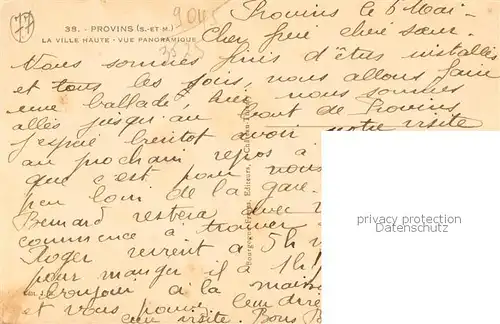 38. - PROVINS (S.-ET-M.)
LA VILLE HAUTE - VUE PANORAMIQUE
Provins le 6 Mai -
Cher frère chère sœur.
Nous sommes finis d'êtres installés
et tous les soirs, nous allons faire
une ballade, hier nous sommes
allés jusqu'au bout de Provins,
j'espère bientot avoir votre visite
au prochain repos à
que c'est pour nous
peu loin de la gare.
Bernard restera avec
commence à trouver
Roger revient à 5h
pour manger il a 1h
toujour à la mais
et vous pouv
visite. Bons B
Bourgogne Frères, Editeurs, Château-Thierry
privacy protection
Datenschutz